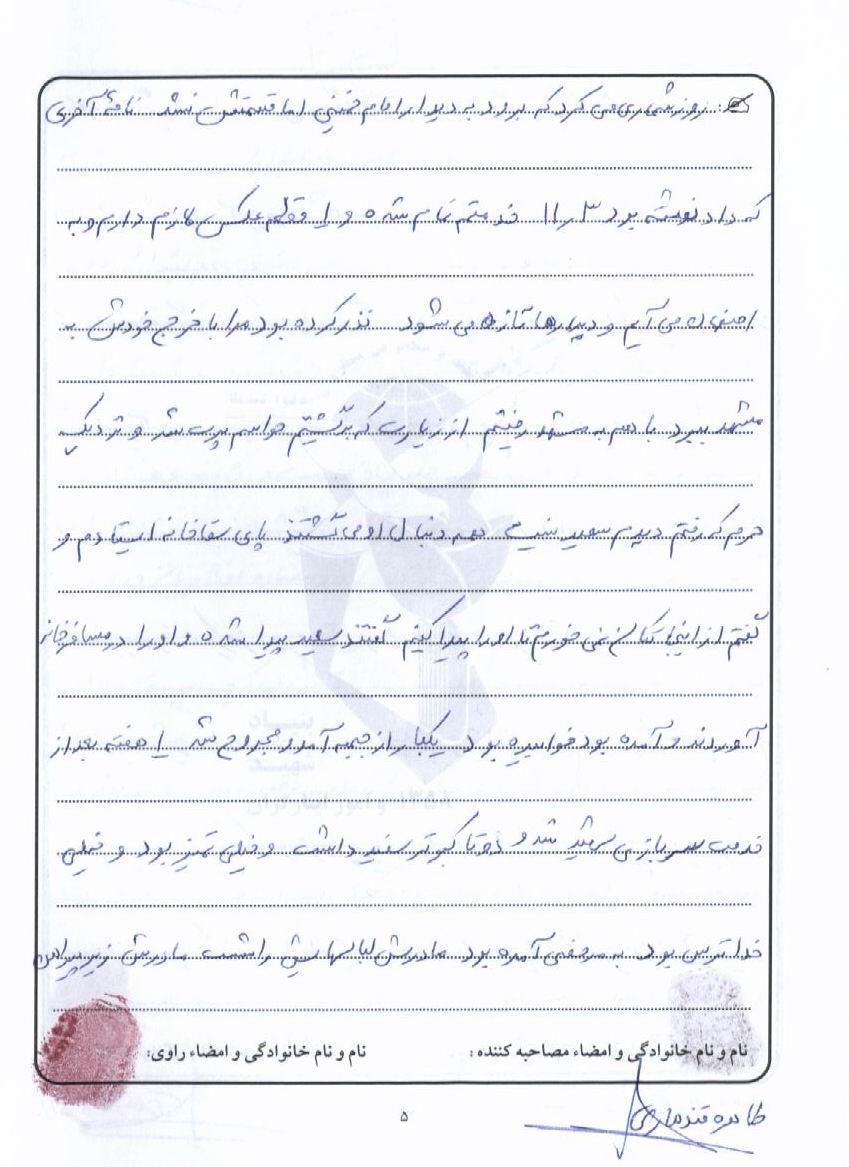 روز شماری می کرد که برود به دیدار امام خمینی اما قسمتش نشد نامه آخری
که داد نوشته بود ۱۱/۳ خدمتم تمام شده و ا قطعه عکس لازم دارم و به
اصفهان می آیم و دیدارها تازه می شود نذر کرده بود مرا با خرج خودش به
مشهد ببرد با هم به مشهد رفتیم از زیارت که برگشتیم حواسم پرت شد و نزدیک
حرم که رفتم دیدم سعید نیست همه دنبال او می گشتند پای سقاخانه ایستادم و
گفتم از اینجا تکان نمی خورم تا او را پیدا کنیم گفتند سعید پیدا شده و او را در مسافرخانه
آوردند و آمده بود خوابیده بود یکبار از جبهه آمد و مجروح شد ا هفته بعد از
خدمت سربازی شهید شد و دو تا کبوتر سفید داشت و خیلی تمیز بود و خیلی
خدا ترس بود به مرخصی آمده بود مادرش لباسهایش را شست مادرش زیر پیراهن
نام و نام خانوادگی و امضاء مصاحبه کننده : نام و نام خانوادگی و امضاء راوی:
طاهره قندهاری
۵
بنیاد
شهید
و امور ایثارگران
۱۳۵۸